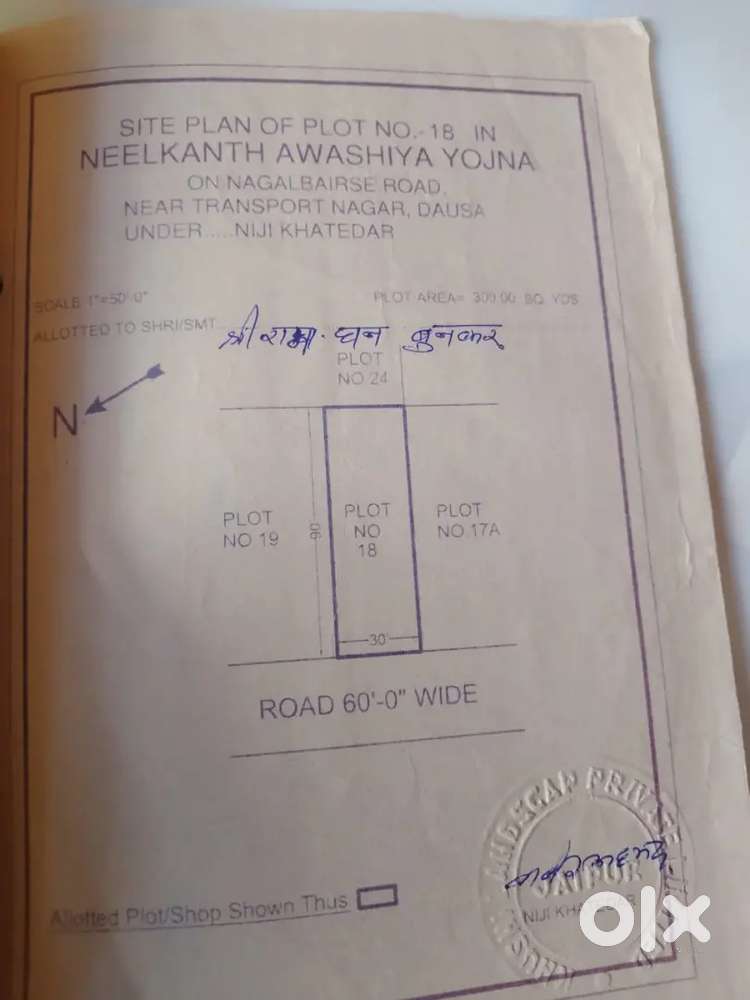 SITE PLAN OF PLOT NO.-18 IN
NEELKANTH AWASHIYA YOJNA
ON NAGALBAIRSE ROAD,
NEAR TRANSPORT NAGAR, DAUSA
UNDER.....NIJI KHATEDAR
SCALE 1"=50'.0"
PLOT AREA= 300.00 SQ. YDS
ALLOTTED TO SHRI/SMT.
श्री राम धन बुनकर
PLOT
NO 24
N
PLOT
NO 19
90
PLOT
NO
18
PLOT
NO.17A
30'
ROAD 60'-0" WIDE
Allotted Plot/Shop Shown Thus
PRIVATE
JAIPUR
NIJI KHATEDAR
olx